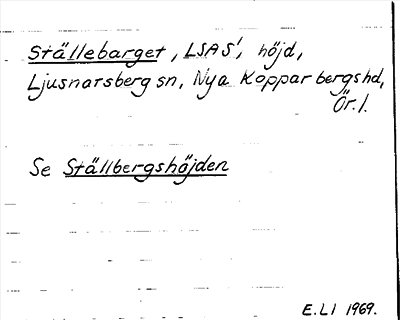 Ställebarget, LSAS', höjd,
Ljusnarsberg sn, Nya Kopparbergs hd,
Ör. l.
Se Ställbergshöjden
E. LI 1969.